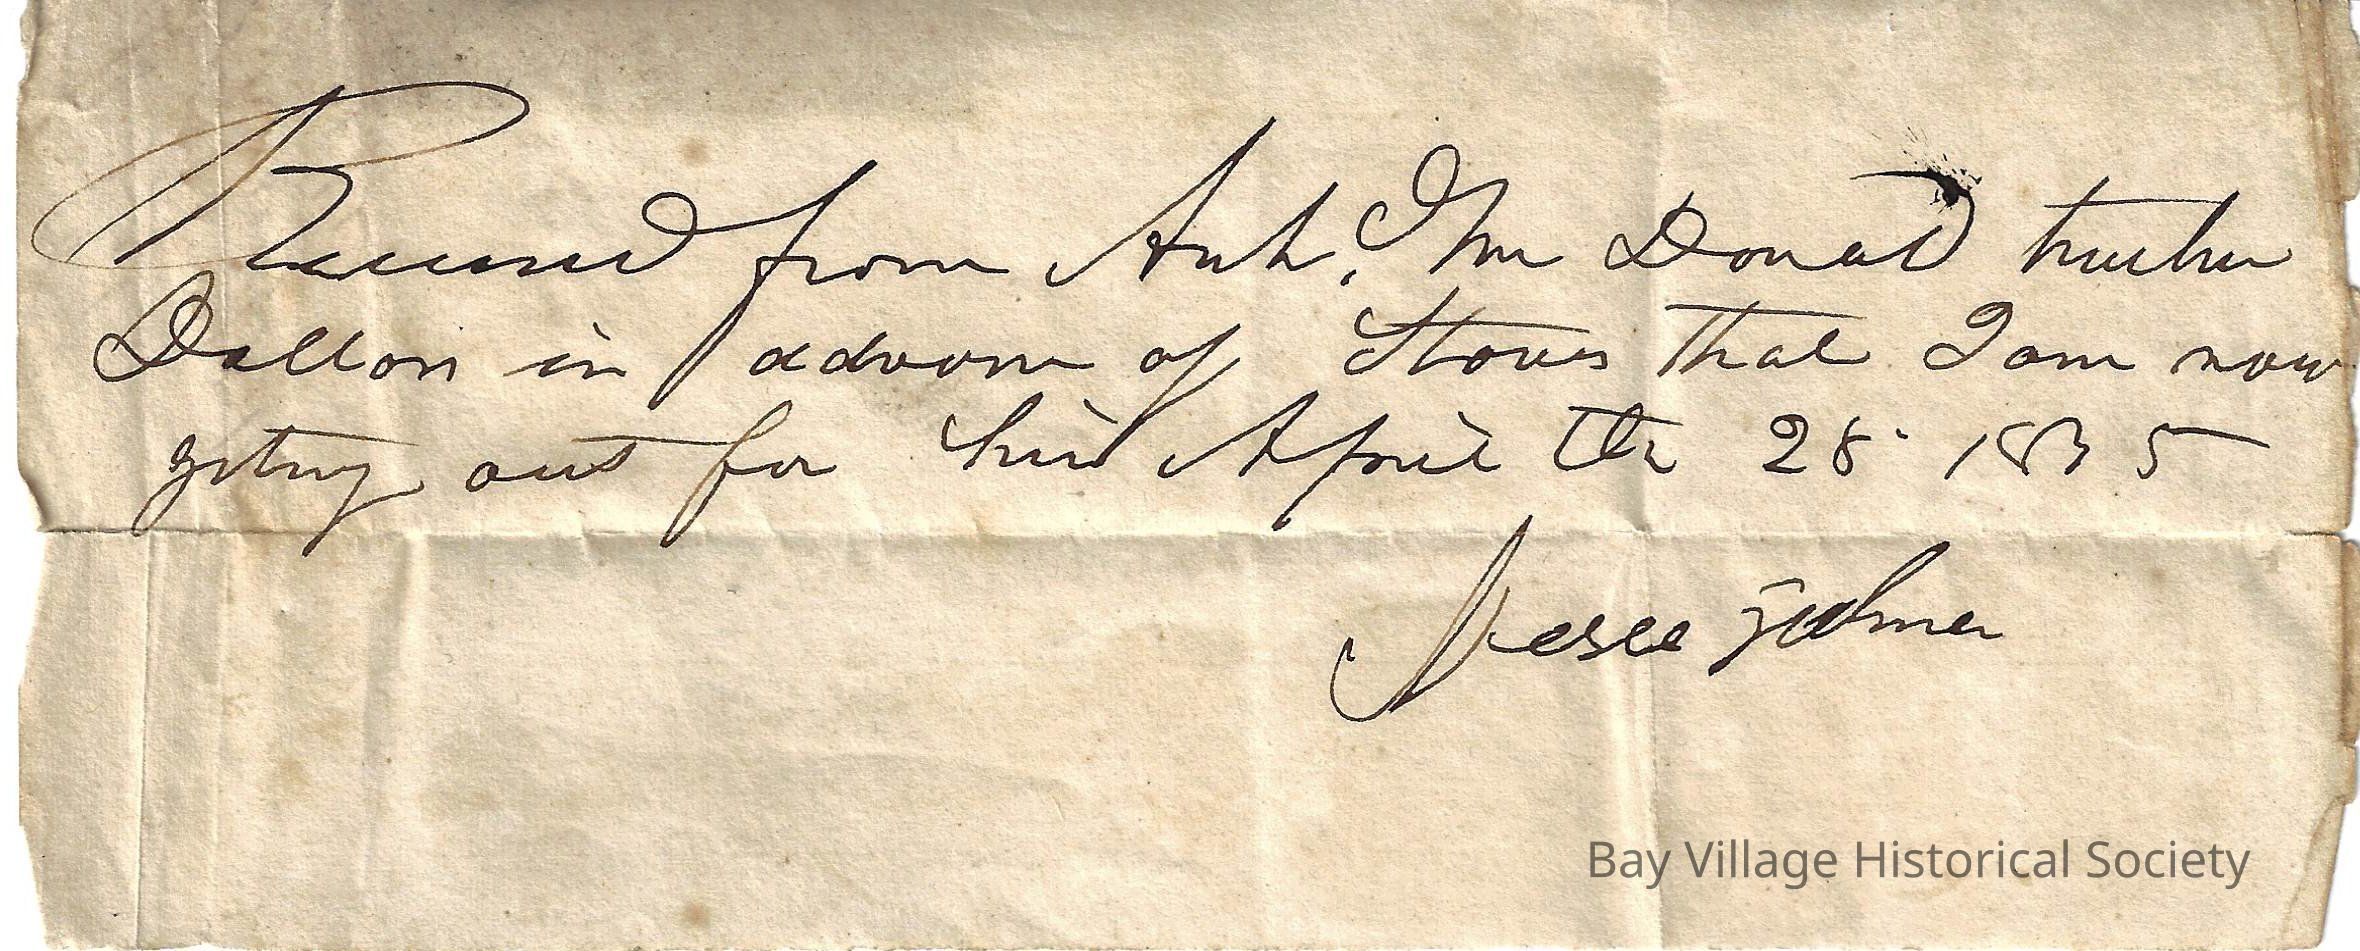 Received from Arch. Mc Donald twelve
Dollars in advance of Stones that I am now
geting out for him April the 28 1835
Jesse
Bay Village Historical Society